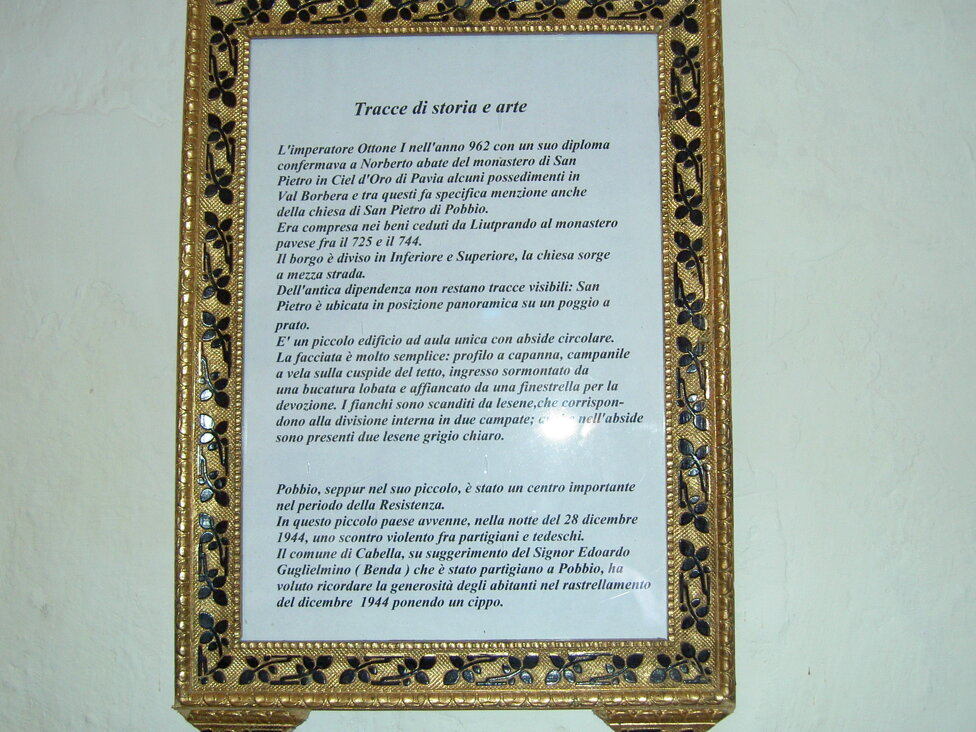 Tracce di storia e arte
L'imperatore Ottone I nell'anno 962 con un suo diploma
confermava a Norberto abate del monastero di San
Pietro in Ciel d'Oro di Pavia alcuni possedimenti in
Val Borbera e tra questi fa specifica menzione anche
della chiesa di San Pietro di Pobbio.
Era compresa nei beni ceduti da Liutprando al monastero
pavese fra il 725 e il 744.
Il borgo è diviso in Inferiore e Superiore, la chiesa sorge
a mezza strada.
Dell'antica dipendenza non restano tracce visibili: San
Pietro è ubicata in posizione panoramica su un poggio a
prato.
E' un piccolo edificio ad aula unica con abside circolare.
La facciata è molto semplice: profilo a capanna, campanile
a vela sulla cuspide del tetto, ingresso sormontato da
una bucatura lobata e affiancato da una finestrella per la
devozione. I fianchi sono scanditi da lesene,che corrispon-
dono alla divisione interna in due campate; nell'abside
sono presenti due lesene grigio chiaro.
Pobbio, seppur nel suo piccolo, è stato un centro importante
nel periodo della Resistenza.
In questo piccolo paese avvenne, nella notte del 28 dicembre
1944, uno scontro violento fra partigiani e tedeschi.
Il comune di Cabella, su suggerimento del Signor Edoardo
Guglielmino ( Benda ) che è stato partigiano a Pobbio, ha
voluto ricordare la generosità degli abitanti nel rastrellamento
del dicembre 1944 ponendo un cippo.